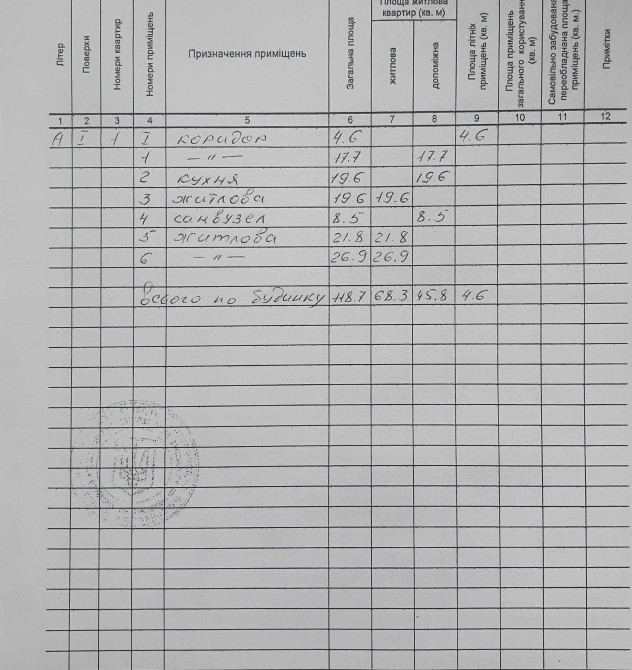 Літер
Поверхи
Номери квартир
Номери приміщень
Призначення приміщень
Загальна площа
Площа житлова
квартир (кв. м)
житлова
допоміжна
Площа літніх
приміщень (кв. м)
Площа приміщень
загального користування
(кв. м)
Самовільно забудована
переобладнана площа
приміщень (кв. м.)
Примітки
1 2 3 4 5 6 7 8 9 10 11 12
А I 1 I коридор 4.6 4.6
1 — " — 17.7 17.7
2 кухня 19.6 19.6
3 житлова 19 6 19.6
4 санвузел 8.5 8.5
5 житлова 21.8 21.8
6 — " — 26.9 26.9
Всього по будинку 118.7 68.3 45.8 4.6